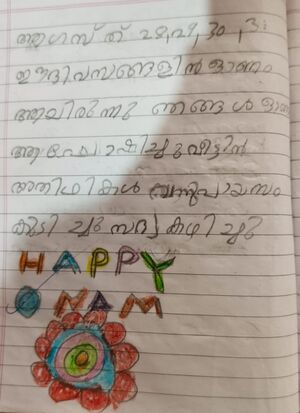 ആഗസ്ത് 28, 29, 30, 31
ഈ ദിവസങ്ങളിൽ ഓണം
ആയിരുന്നു ഞങ്ങൾ ഓണം
ആഘോഷിച്ചു വീട്ടിൽ
അതിഥികൾ വന്നു പായസം
കുടിച്ചു സദ്യ കഴിച്ചു
HAPPY
ONAM